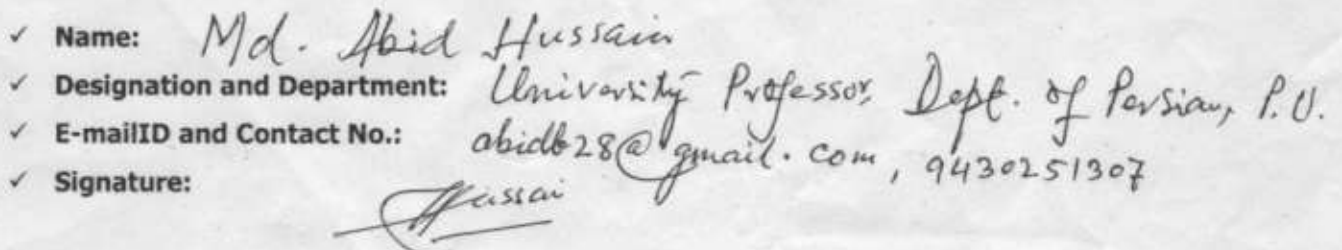 ✓ Name: Md. Abid Hussain
✓ Designation and Department: University Professor, Dept. of Persian, P.U.
✓ E-mailID and Contact No.: abidb28@gmail.com, 9430251307
✓ Signature: Hussai